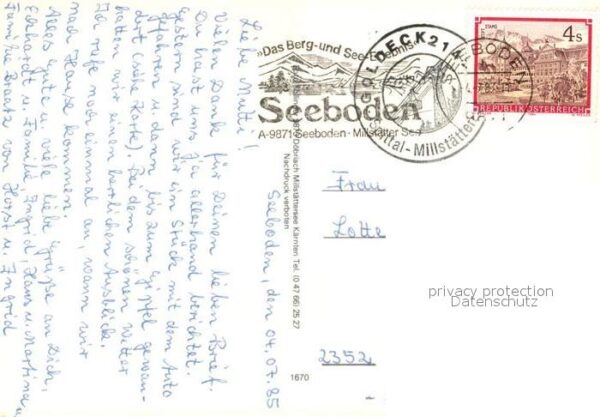 Seeboden, den 04.07.85
Liebe Mutti!
Vielen Dank für Deinen lieben Brief.
Du hast uns ja allerhand berichtet.
Gestern sind wir ein Stück mit dem Auto
gefahren u. dann bis zum Gipfel gewan-
dert (siehe Karte). Bei dem schönen Wetter
hatten wir einen herrlichen Ausblick.
Ich rufe noch einmal an, wann wir
nach Hause kommen.
Alles Gute u. viele liebe Grüße an Dich,
Eckhardt u. Familie, Ingrid, Hans u. Martina u.
Familie Braatz von Horst u. Ingrid
»Das Berg- und See-Erlebnis«
Seeboden
A-9871 Seeboden · Millstätter See
GOLDECK 214
SEEBODEN
Spittal-Millstätter
STAMS
4 S
REPUBLIK ÖSTERREICH
Döbriach Millstättersee Kärnten Tel. (0 47 66) 25 27
Nachdruck verboten
1670
Frau
Lotte
2352
privacy protection
Datenschutz